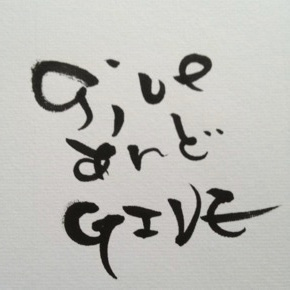 Give
あんど
GIVE